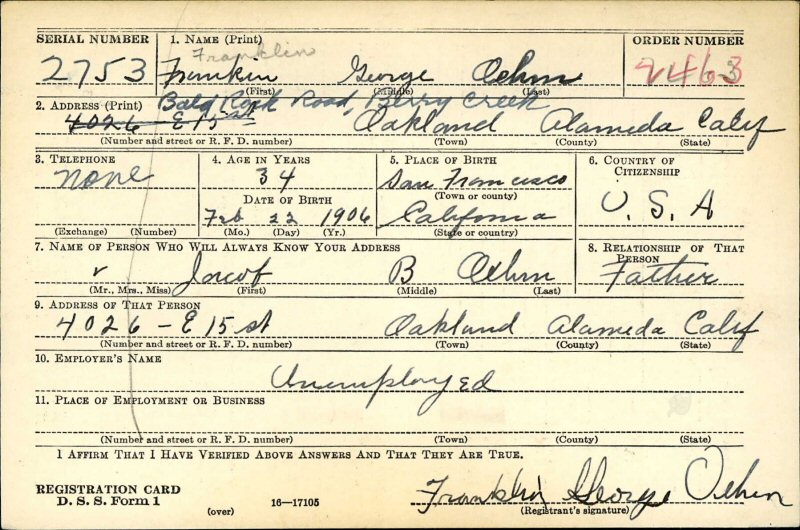 SERIAL NUMBER 1. NAME (Print) ORDER NUMBER
Franklin
2753 Frankin George Oehm 2463
(First) (Middle) (Last)
2. ADDRESS (Print) Bald Rock Road, Berry Creek
4026 - E 15 st Oakland Alameda Calif
(Number and street or R. F. D. number) (Town) (County) (State)
3. TELEPHONE 4. AGE IN YEARS 5. PLACE OF BIRTH 6. COUNTRY OF CITIZENSHIP
none 34 San Francisco
DATE OF BIRTH (Town or county) U. S. A
Feb 22 1906 California
(Exchange) (Number) (Mo.) (Day) (Yr.) (State or country)
7. NAME OF PERSON WHO WILL ALWAYS KNOW YOUR ADDRESS 8. RELATIONSHIP OF THAT PERSON
Jacob B Oehm Father
(Mr., Mrs., Miss) (First) (Middle) (Last)
9. ADDRESS OF THAT PERSON
4026 - E 15 st Oakland Alameda Calif
(Number and street or R. F. D. number) (Town) (County) (State)
10. EMPLOYER'S NAME
Unemployed
11. PLACE OF EMPLOYMENT OR BUSINESS
(Number and street or R. F. D. number) (Town) (County) (State)
I AFFIRM THAT I HAVE VERIFIED ABOVE ANSWERS AND THAT THEY ARE TRUE.
Franklin George Oehm
REGISTRATION CARD
D. S. S. Form 1 (over) 16—17105 (Registrant's signature)